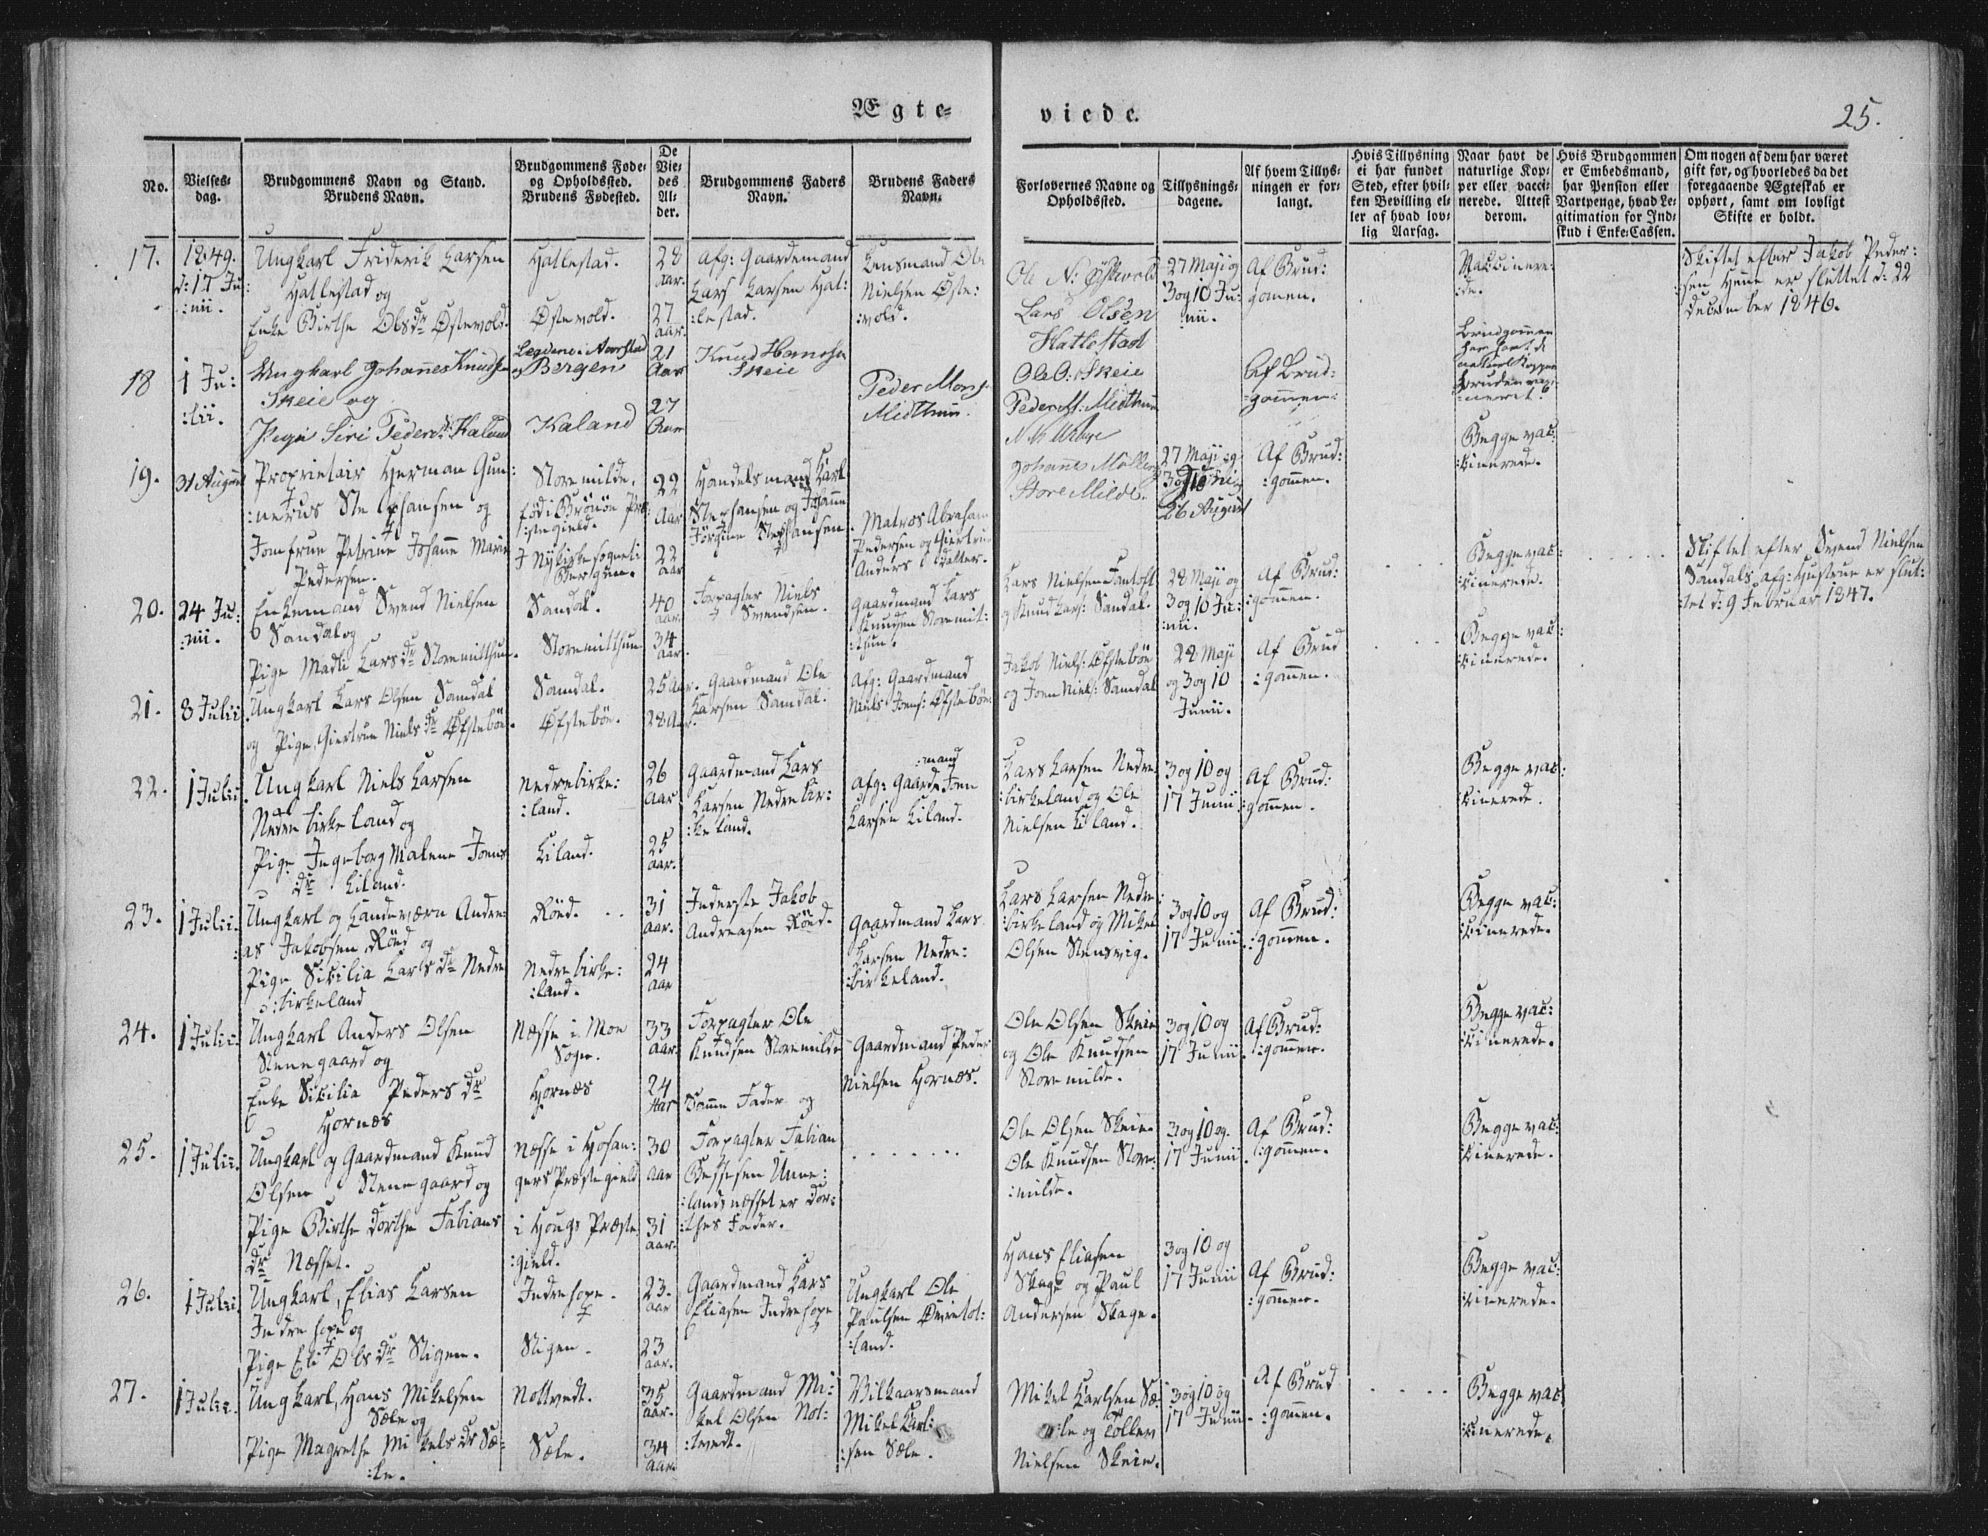 Ægte-
viede.
25.
No.
Vielses-
dag.
Brudgommens Navn og Stand.
Brudens Navn.
Brudgommens Føde-
og Opholdssted.
Brudens Fødested.
De
Vie-
des
Al-
der.
Brudgommens Faders
Navn.
Brudens Faders
Navn.
Forlovernes Navne og
Opholdssted.
Tillysnings-
dagene.
Af hvem Tillys-
ningen er for-
langt.
Hvis Tillysning
ei har fundet
Sted, efter hvil-
ken Bevilling el-
ler af hvad lov-
lig Aarsag.
Naar havt de
naturlige Kop-
per eller vacci-
nerede. Attest
derom.
Hvis Brudgommen
er Embedsmand,
har Pension eller
Vartpenge, hvad Le-
gitimation for Ind-
skud i Enke-Cassen.
Om nogen af dem har været
gift før, og hvorledes da det
foregaaende Ægteskab er
ophørt, samt om lovligt
Skifte er holdt.
17.
1849.
d: 17 Ju:
:nii.
Ungkarl Friderik Larsen
Hatlestad og
Enke Birthe Olsdr Østevold.
Hatlestad.
Østevold.
28
Aar.
27
aar.
Afg: Gaardemand
Lars Larsen Hat:
:lestad.
Lensmand Ole
Nielsen Øste:
:vold.
Ole N: Østevold
Lars Olsen
Hatlestad
27 Maji og
3 og 10 Ju:
:nii.
Af Brud:
gomen.
Vaccinere:
:de.
Skiftet efter Jakob Peder:
:sen Hjeme er sluttet d: 22
December 1846.
18
1 Ju:
:lii.
Ungkarl Johannes Knudsen
Skeie og
Pige Siri Pedersdr Kaland
Bergen
Kaland
21
Aar
27
Aar
Knud Hansen
Skeie
Peder Mons.
Midthun.
Ole O: Skeie
Peder M: Midthun
Af Brud:
:gommen.
Brudgommen
har havt de
naturl Kopper
Bruden vaci-
:neret.
19.
31 August
Proprietair Herman Gun:
:nerius Stephansen og
Jomfrue Petrine Johanne Marie
Pedersen.
Storemilde,
født i Brönöe Præ:
:stegield.
I Nykirkesognet i
Bergen.
22
Aar
22
aar
Handelsmand Carl
Stephansen og Johanne
Jörgine Stephansen
Matros Abraham
Pedersen og Giertru
Anders Datter.
Johannes Möller
Store Milde.
27 Maji og
3 og 10 Juni
26 August
Af Brud:
:gommen.
Begge vac:
:cinerede.
20.
24 Ju:
:nii.
Enkemand Svend Nielsen
Sandal og
Pige Madli Larsdr Storemitthun.
Sandal.
Storemitthun
40
aar.
34
aar.
Forpagter Niels
Svendsen.
Gaardmand Lars
Knudsen Storemit:
:hun.
Lars Nielsen Tantoft
og Knud Lars: Sandal.
28 Maji og
3 og 10 Ju:
:nii.
Af Brud:
:gommen.
Begge vac:
:cinerede.
Skiftet efter Svend Nielsen
Sandals afg: Hustrue er slut:
:tet d: 9 Februar 1847.
21.
8 Julii
Ungkarl Lars Olsen Samdal
og Pige Giertrue Nielsdr Øfstebön.
Samdal.
Øfstebön.
25 Aar.
28 Aar.
Gaardmand Ole
Larsen Samdal.
Afg: Gaardmand
Niels Joens: Øfstebön
Jakob Niels: Øfstebön
og Joen Niels: Samdal
28 Maji
og 3 og 10
Junii.
Af Brud
:gommen.
Begge vac:
:cinerede.
22.
1 Julii
Ungkarl Niels Larsen
Nedrebirkeland og
Pige Ingeborg Malene Joens
dr Liland.
Nedrebirke:
:land.
Liland.
26
Aar
25
aar.
Gaardmand Lars
Larsen Nedrebir:
:keland.
Afg: Gaarde:mand Joen
Larsen Liland.
Lars Larsen Nedre
:birkeland og Ole
Nielsen Liland.
3 og 10 og
17 Junii
Af Brud:
:gommen.
Begge vac:
:cinerede.
23.
1 Julii.
Ungkarl og Landeværn Andre:
:as Jakobsen Rönd og
Pige Sicilia Larsdr Nedre
:birkeland
Rönd.
Nedrebirke:
:land.
31
aar.
24
aar
Inderste Jakob
Andreasen Rönd.
Gaardmand Lars
Larsen Nedre:
:birkeland.
Lars Larsen Nedre:
:birkeland og Mikel
Olsen Stensvig.
3 og 10 og
17 Junii.
Af Brud:
:gommen.
Begge vac:
:cinerede.
24.
1 Julii.
Ungkarl Anders Olsen
Stenegaard og
Enke Sicilia Pedersdr
Hornes
Næsse i Moe
Sogn.
Hornæs
33
aar.
24
Aar
Forpagter Ole
Knudsen Storemilde
Samme Fader og
Gaardmand Peder
Nielsen Hornæs.
Ole Olsen Skeie
og Ole Knudsen
Storemilde.
3 og 10 og
17 Junii.
Af Brud:
:gommen.
Begge vac:
:cinerede.
25.
1 Julii.
Ungkarl og Gaardmand Knud
Olsen Stenegaard og
Pige Birthe Dorthe Fabians
dr Næsset.
Næsse i Hosan:
gers Præstegield
i Hougs Præste
:gield.
30
aar
31
aar.
Forpagter Fabian
:landsnæsset er Dor:
:thes Fader.
Ole Olsen Skeie.
Ole Knudsen Store:
:milde.
3 og 10 og.
17 Junii.
Af Brud:
:gommen.
Begge vac:
:cinerede.
26.
1 Julii.
Ungkarl, Elias Larsen
Indrehope og
Pige Eli Olsdr Stigen.
Indrehope.
Stigen.
23.
aar
23
aar.
Gaardmand Lars
Eliasen Indrehope
Ungkarl Ole
Paulsen
:land.
Hans Eliasen
Skage og Paul
Andersen Skage.
3 og 10 og
17 Junii
Af Brud:
:gommen.
Begge vac:
:cinerede.
27.
1 Julii.
Ungkarl, Hans Mikelsen
Sæle og
Pige Magrethe Mikelsdr Sæ:
:le.
Nottvedt.
Sæle.
35
aar.
34
aar
Gaardmand Mi:
:kel Olsen Not:
:tvedt.
Vilkaarsmand
Mikel Karl:
:sen Sæle.
Mikel Karlsen Sæ:
:le og Tollev
Nielsen Skeie.
3 og 10 og
17 Junii.
Af Brud
:gommen.
Begge vac:
:cinerede.